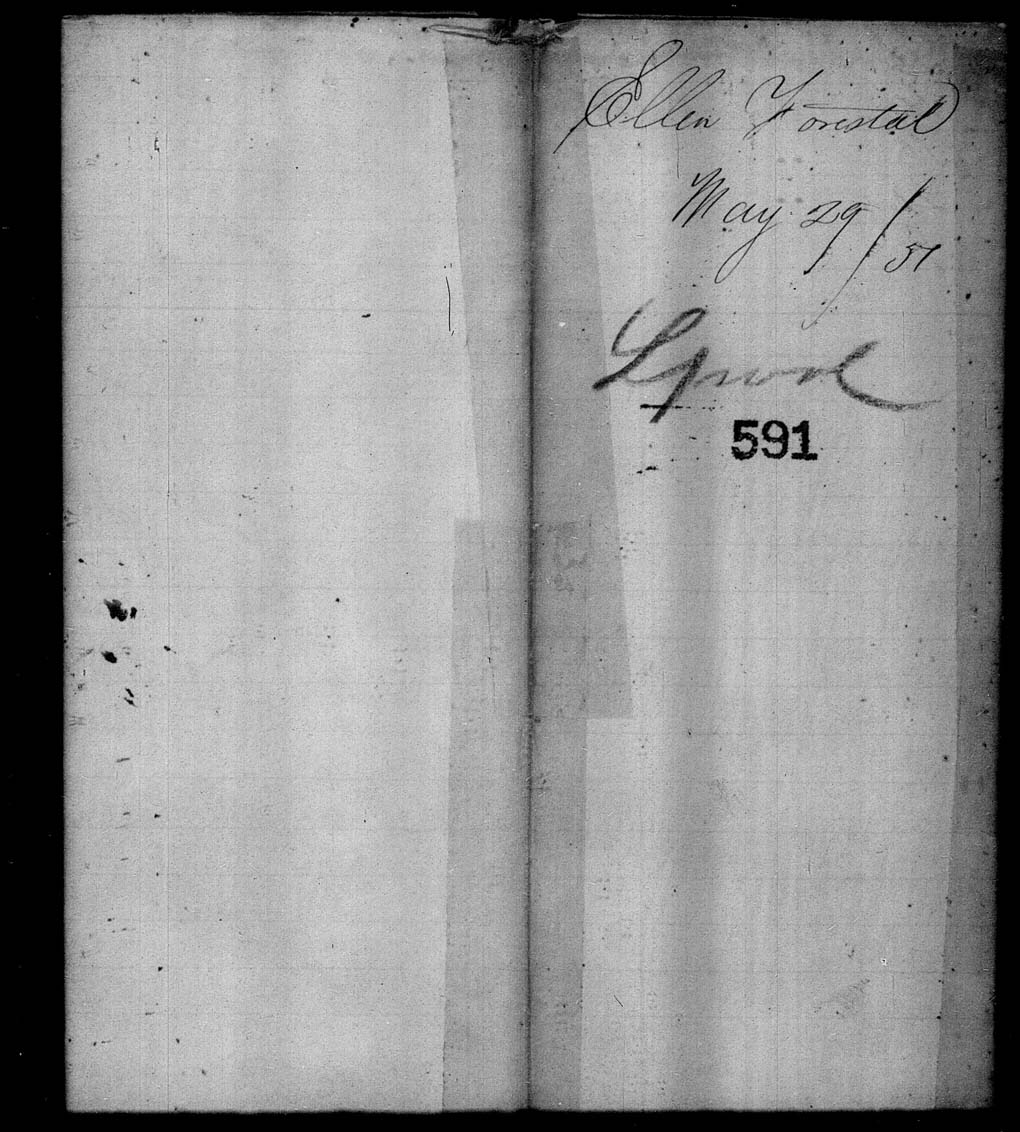 Ellen Forestal
May 29/51
Lpool
591